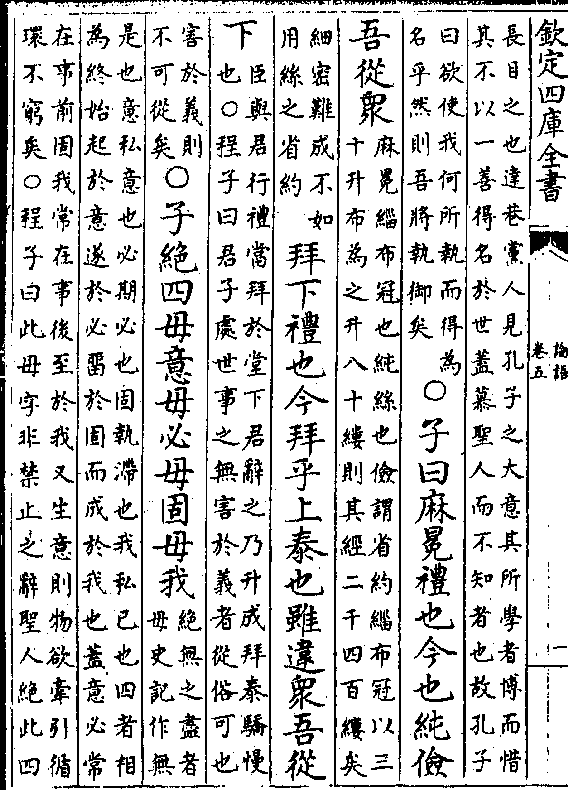 欽定四庫全書
論語
卷五
一
長目之也達巷黨人見孔子之大意其所學者博而惜
其不以一善得名於世蓋慕聖人而不知者也故孔子
曰欲使我何所執而得為
名乎然則吾將執御矣
○子曰麻冕禮也今也純儉
吾從衆
麻冕緇布冠也純絲也儉謂省約緇布冠以三
十升布為之升八十縷則其經二千四百縷矣
細密難成不如
用絲之省約
拜下禮也今拜乎上泰也雖違衆吾從
下
臣與君行禮當拜於堂下君辭之乃升成拜泰驕慢
也○程子曰君子處世事之無害於義者從俗可也
害於義則
不可從矣
○子絶四毋意毋必毋固毋我
絶無之盡者
毋史記作無
是也意私意也必期必也固執滯也我私己也四者相
為終始起於意遂於必留於固而成於我也蓋意必常
在事前固我常在事後至於我又生意則物欲牽引循
環不窮矣○程子曰此毋字非禁止之辭聖人絶此四